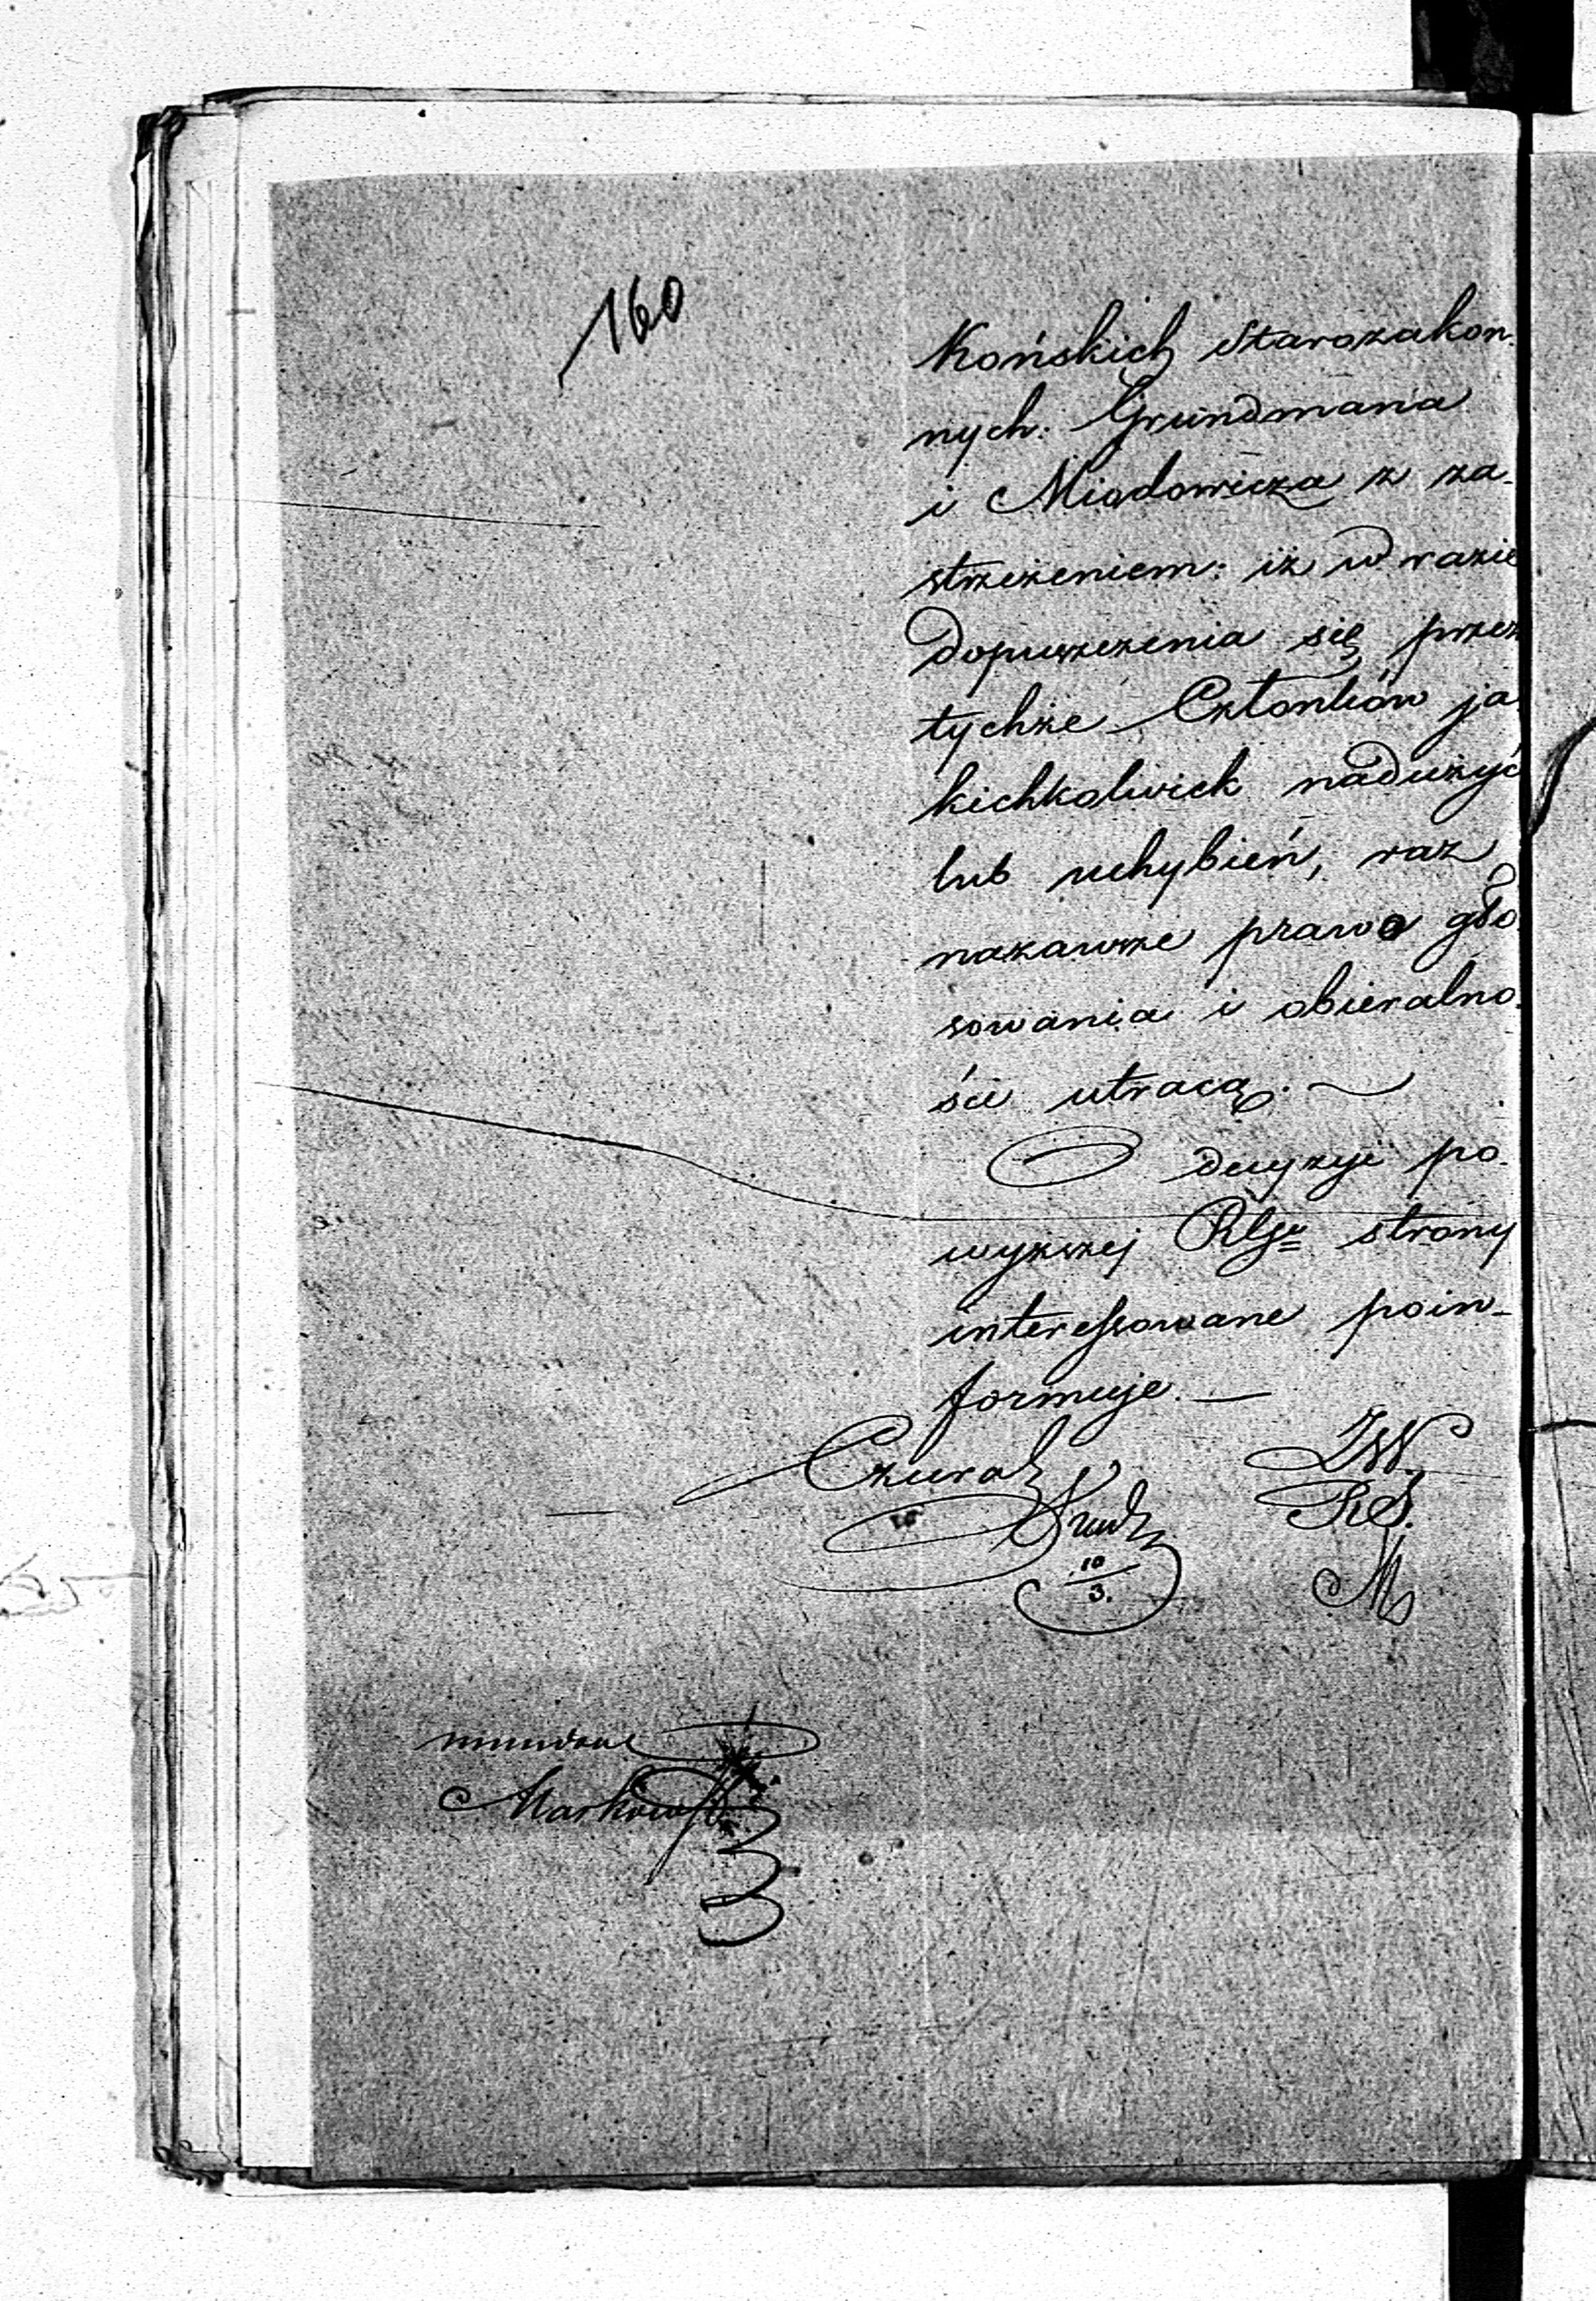 160
Końskich Starozakon-
nych: Grundmana
i Miodowicza z za-
strzeżeniem: iż w razie
dopuszczenia się przez
tychże Członków ja-
kichkolwiek nadużyć
lub uchybień, raz
nazawsze prawo gło-
sowania i obieralno-
ści utracą.
O decyzyi po-
wyższej Rłgu strony
interessowane poin-
formuje.
JW.
RS.
M
10
3.
Markows